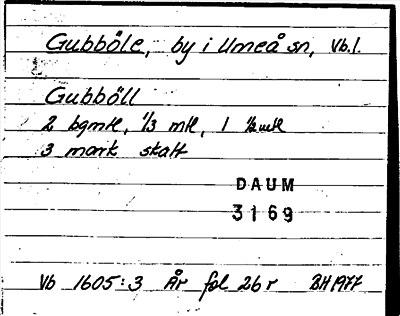 Gubböle, by i Umeå sn, Vb.l.
Gubböll
2 bgmtl, 1/3 mtl, 1 1/2mtl
3 mark skatt
DAUM
3169
Vb 1605:3 År fol 26r BH 1977